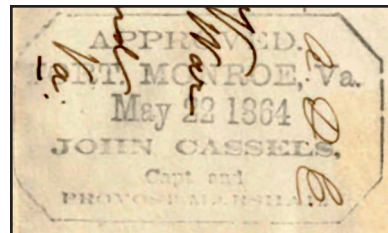 APPROVED.
FORT. MONROE, Va.
May 22 1864
JOHN CASSELS,
Capt and
PROVOST MARSHAL
War
Va.
a D C